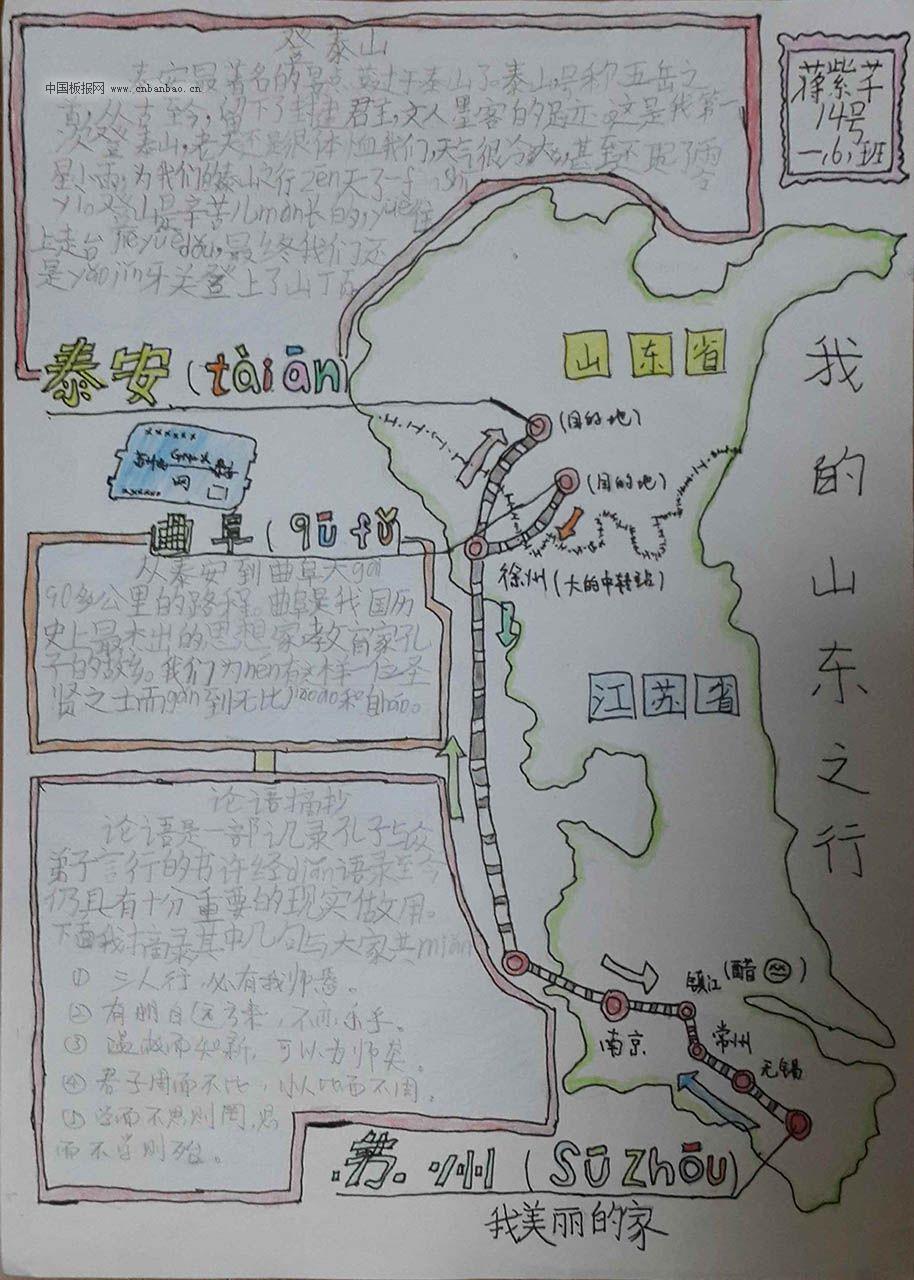 登泰山
泰安最著名的景点莫过于泰山了。泰山号称五岳之
首，从古至今，留下了封建君主，文人墨客的足迹。这是我第一
次登泰山，老天还是很体血我们，天气很冷冰，甚至还起了雪
星小雨，为我们的泰山之行zen天了一
登山是辛苦儿man长的，yuè往
上走台jiē yuè dǒu，最终我们还
是yǎo jǐn牙关登上了山丁
中国板报网 www.cnbanbao.cn
蒋紫芊
14号
一，6，班
泰安(tài ān)
山东省
(目的地)
(目的地)
徐州(大的中转站)
我的山东之行
曲阜(qū fǔ)
从泰安到曲阜大gai
90多公里的路程。曲阜是我国历
史上最杰出的思想家教育家孔
子的故乡。我们为nén有这样一位圣
贤之士而gǎn到无比jiaoao和自hao。
江苏省
论语摘抄
论语是一部记录孔子与众
弟子言行的书许经diǎn语录至今
仍具有十分重要的现实做用。
下面我摘录其中几句与大家共miǎn
① 三人行，必有我师焉。
② 有朋自远方来，不亦乐乎。
③ 温故而知新，可以为师矣。
④ 君子周而不比，小人比而不周。
⑤ 学而不思则罔，思
而不学则殆。
南京
镇江(醋)
常州
无锡
苏州(Sū Zhōu)
我美丽的家